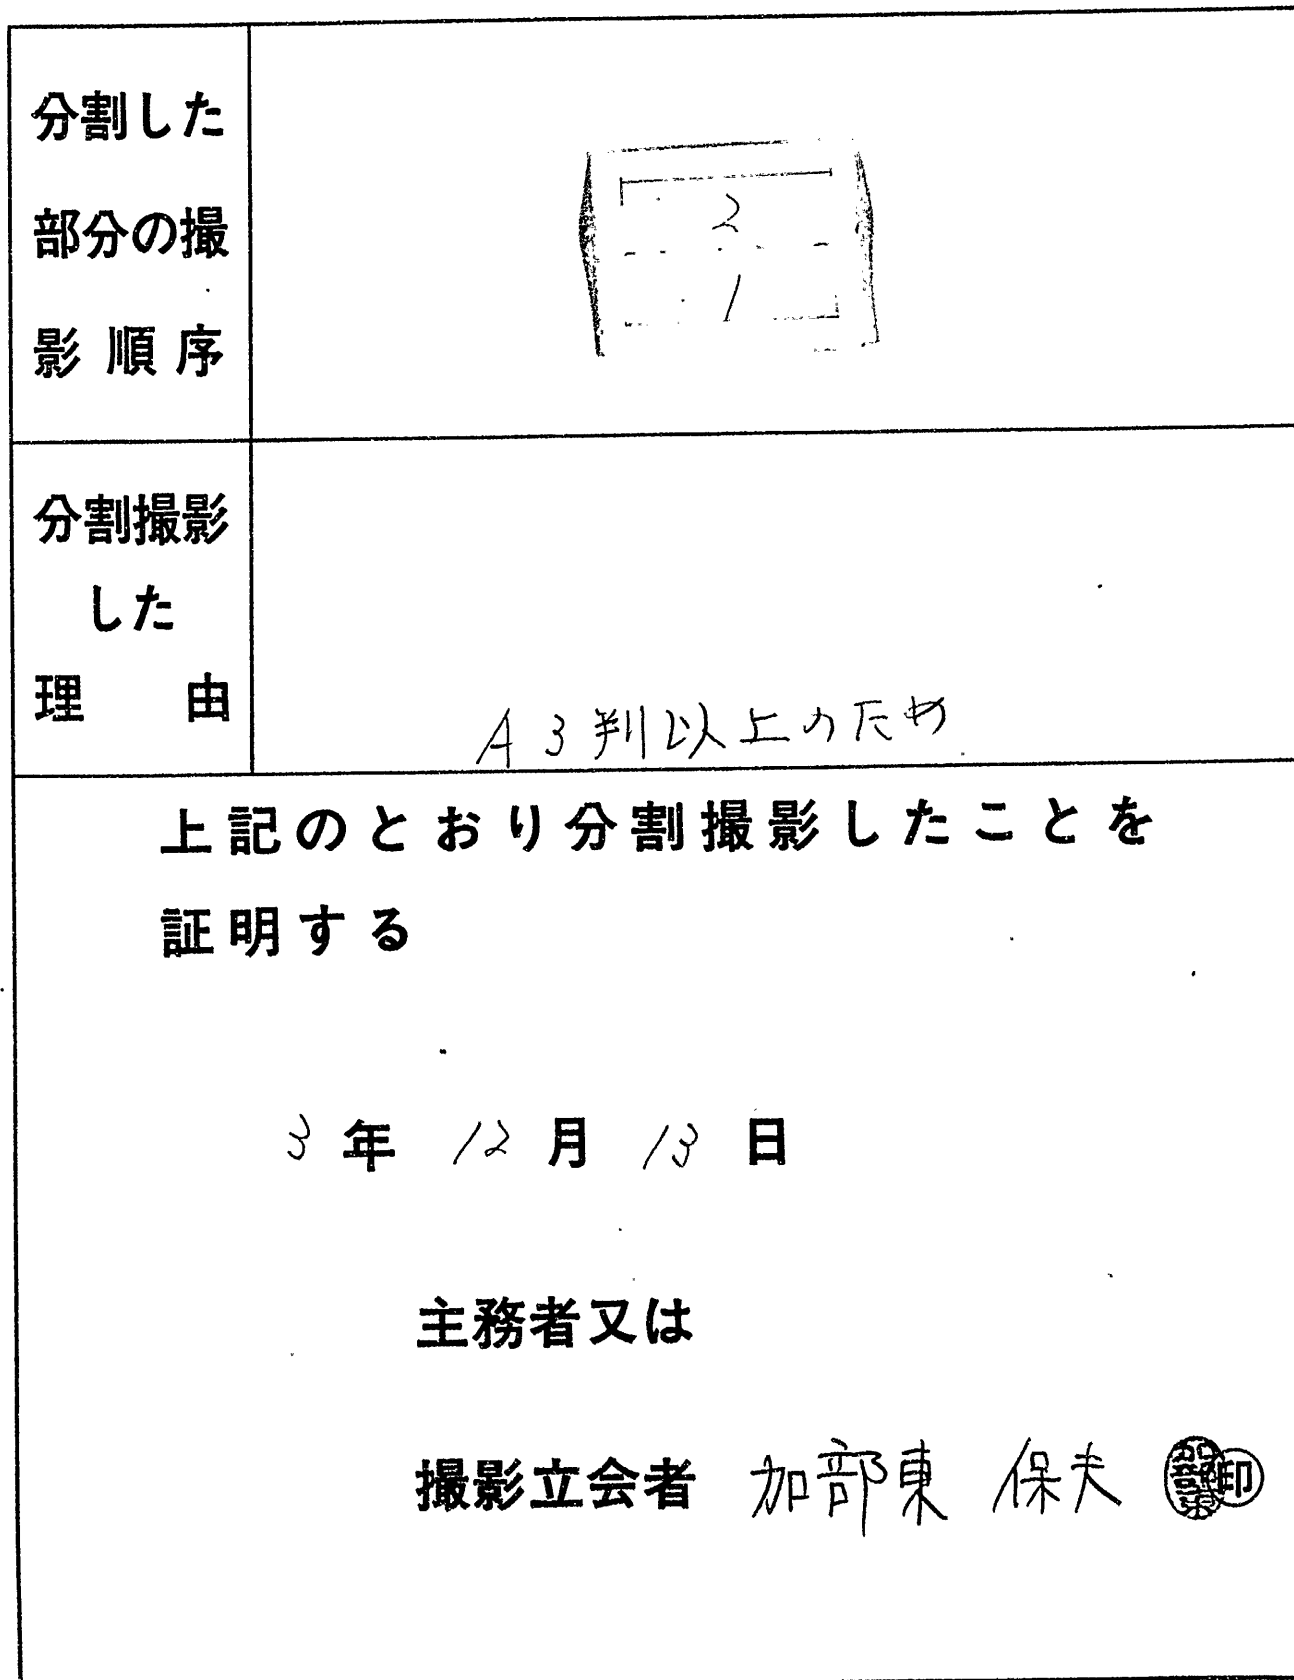 分割した
部分の撮
影順序
2
1
分割撮影
した
理由
A3判以上のため
上記のとおり分割撮影したことを
証明する
3年 12月 13日
主務者又は
撮影立会者 加部東 保夫 加部東 印